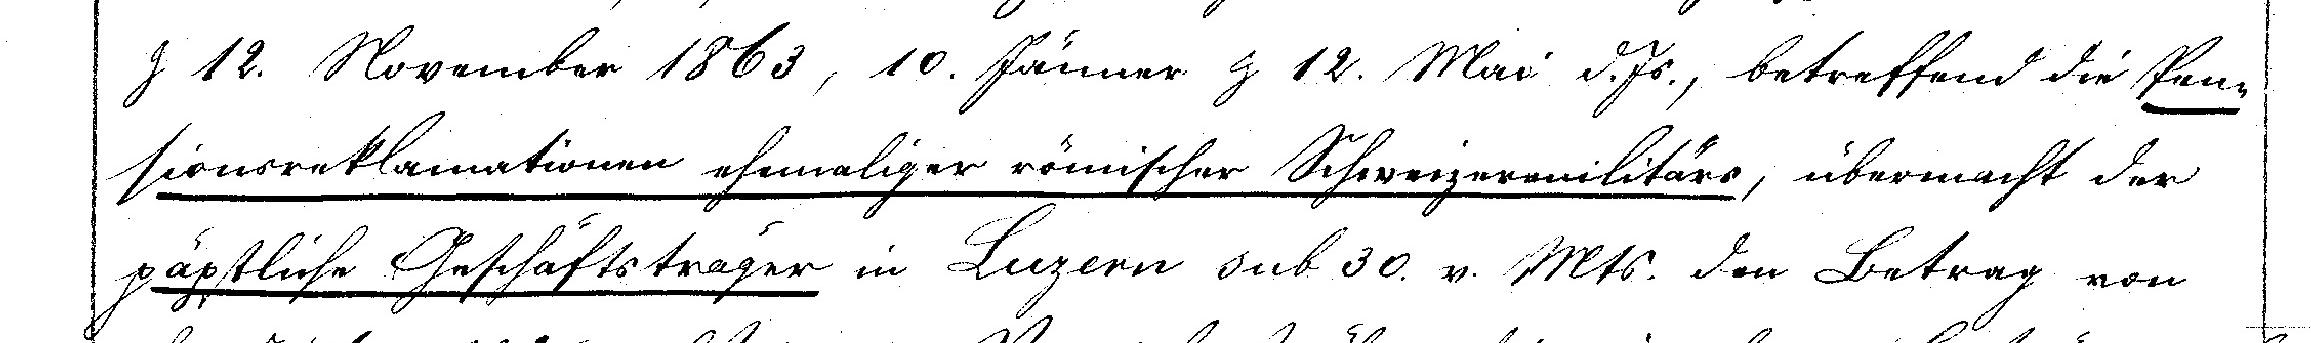 & 12. November 1863, 10. Jänner & 12. Mai d. Js., betreffend die Pen-
sionsreklamationen ehemaliger römischer Schweizermilitärs, übermacht der
päpstliche Geschäftsträger in Luzern sub 30. v. Mts. den Betrag von